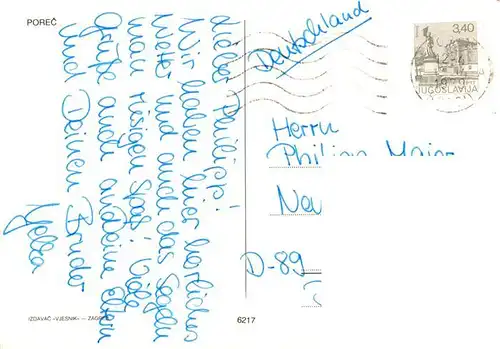 POREČ
Lieber Philipp!
Wir haben hier herrliches
Wetter und auch das Segeln
macht riesigen Spaß! Viele
Grüße auch an Deine Eltern
und Deinen Bruder
Deutschland
3,40
JUGOSLAVIJA
Herrn
Philipp
D-89
IZDAVAČ »VJESNIK« — ZAGREB
6217